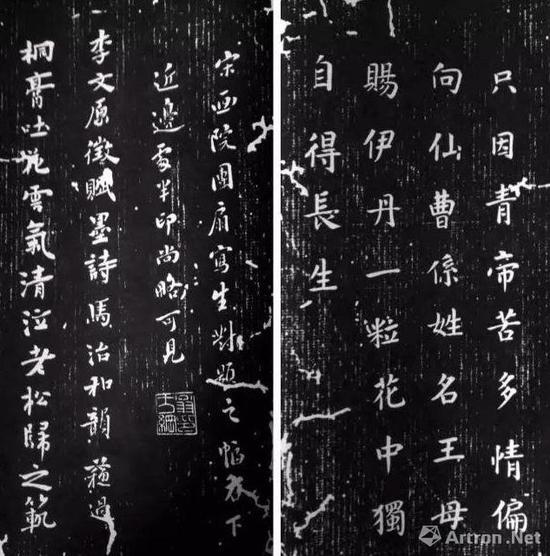 只因青帝苦多情偏
向仙曹係姓名王母
賜伊丹一粒花中獨
自得長生
宋西院團扇寫生對題之幅下
近邊處半印尚略可見
李文原徵賦墨詩馬治和韻過
桐膏吐雲氣清泣老松歸之範
Artron.Net